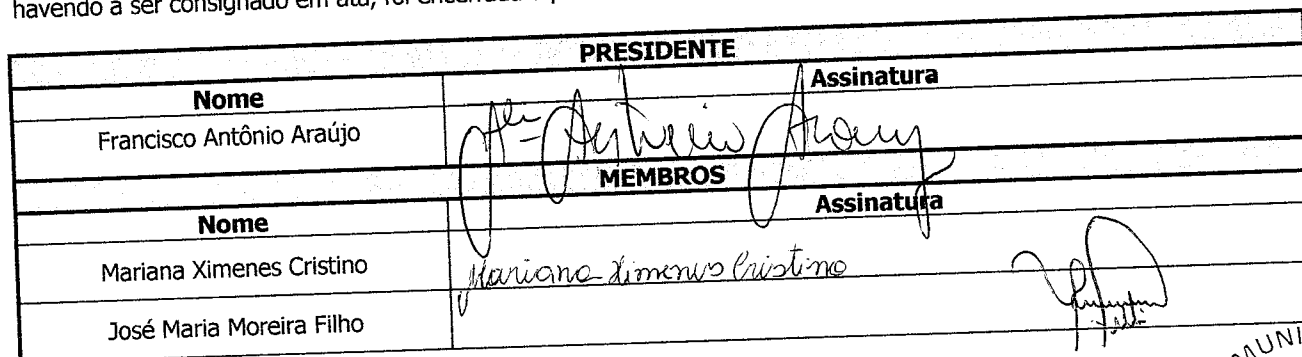 havendo a ser consignado em ata, foi encerrada
PRESIDENTE
Nome Assinatura
Francisco Antônio Araújo Antonio Arauj
MEMBROS
Nome Assinatura
Mariana Ximenes Cristino Mariana Ximenes Cristino
José Maria Moreira Filho
MUNI